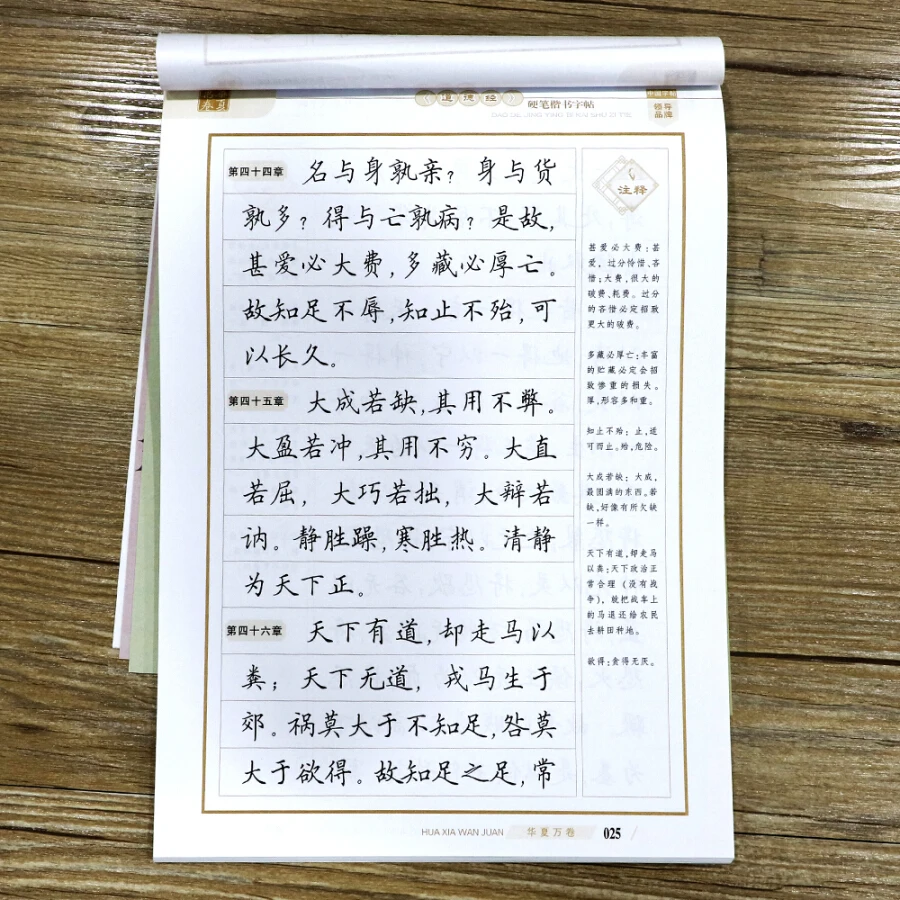 道德经 硬笔楷书字帖
领导
品牌
第四十四章 名与身孰亲？身与货
孰多？得与亡孰病？是故，
甚爱必大费，多藏必厚亡。
故知足不辱，知止不殆，可
以长久。
第四十五章 大成若缺，其用不弊。
大盈若冲，其用不穷。大直
若屈，大巧若拙，大辩若
讷。静胜躁，寒胜热。清静
为天下正。
第四十六章 天下有道，却走马以
粪；天下无道，戎马生于
郊。祸莫大于不知足，咎莫
大于欲得。故知足之足，常
注释
甚爱必大费：甚
爱，过分怜惜、吝
惜；大费，很大的
破费、耗费。过分
的吝惜必定招致
更大的破费。
多藏必厚亡：丰富
的贮藏必定会招
致惨重的损失。
厚，形容多和重。
知止不殆：止，适
可而止。殆，危险。
大成若缺：大成，
最圆满的东西。若
缺，好像有所欠缺
一样。
天下有道，却走马
以粪：天下政治正
常合理（没有战
争），就把战车上
的马退还给农民
去耕田种地。
欲得：贪得无厌。
HUA XIA WAN JUAN 华夏万卷 025